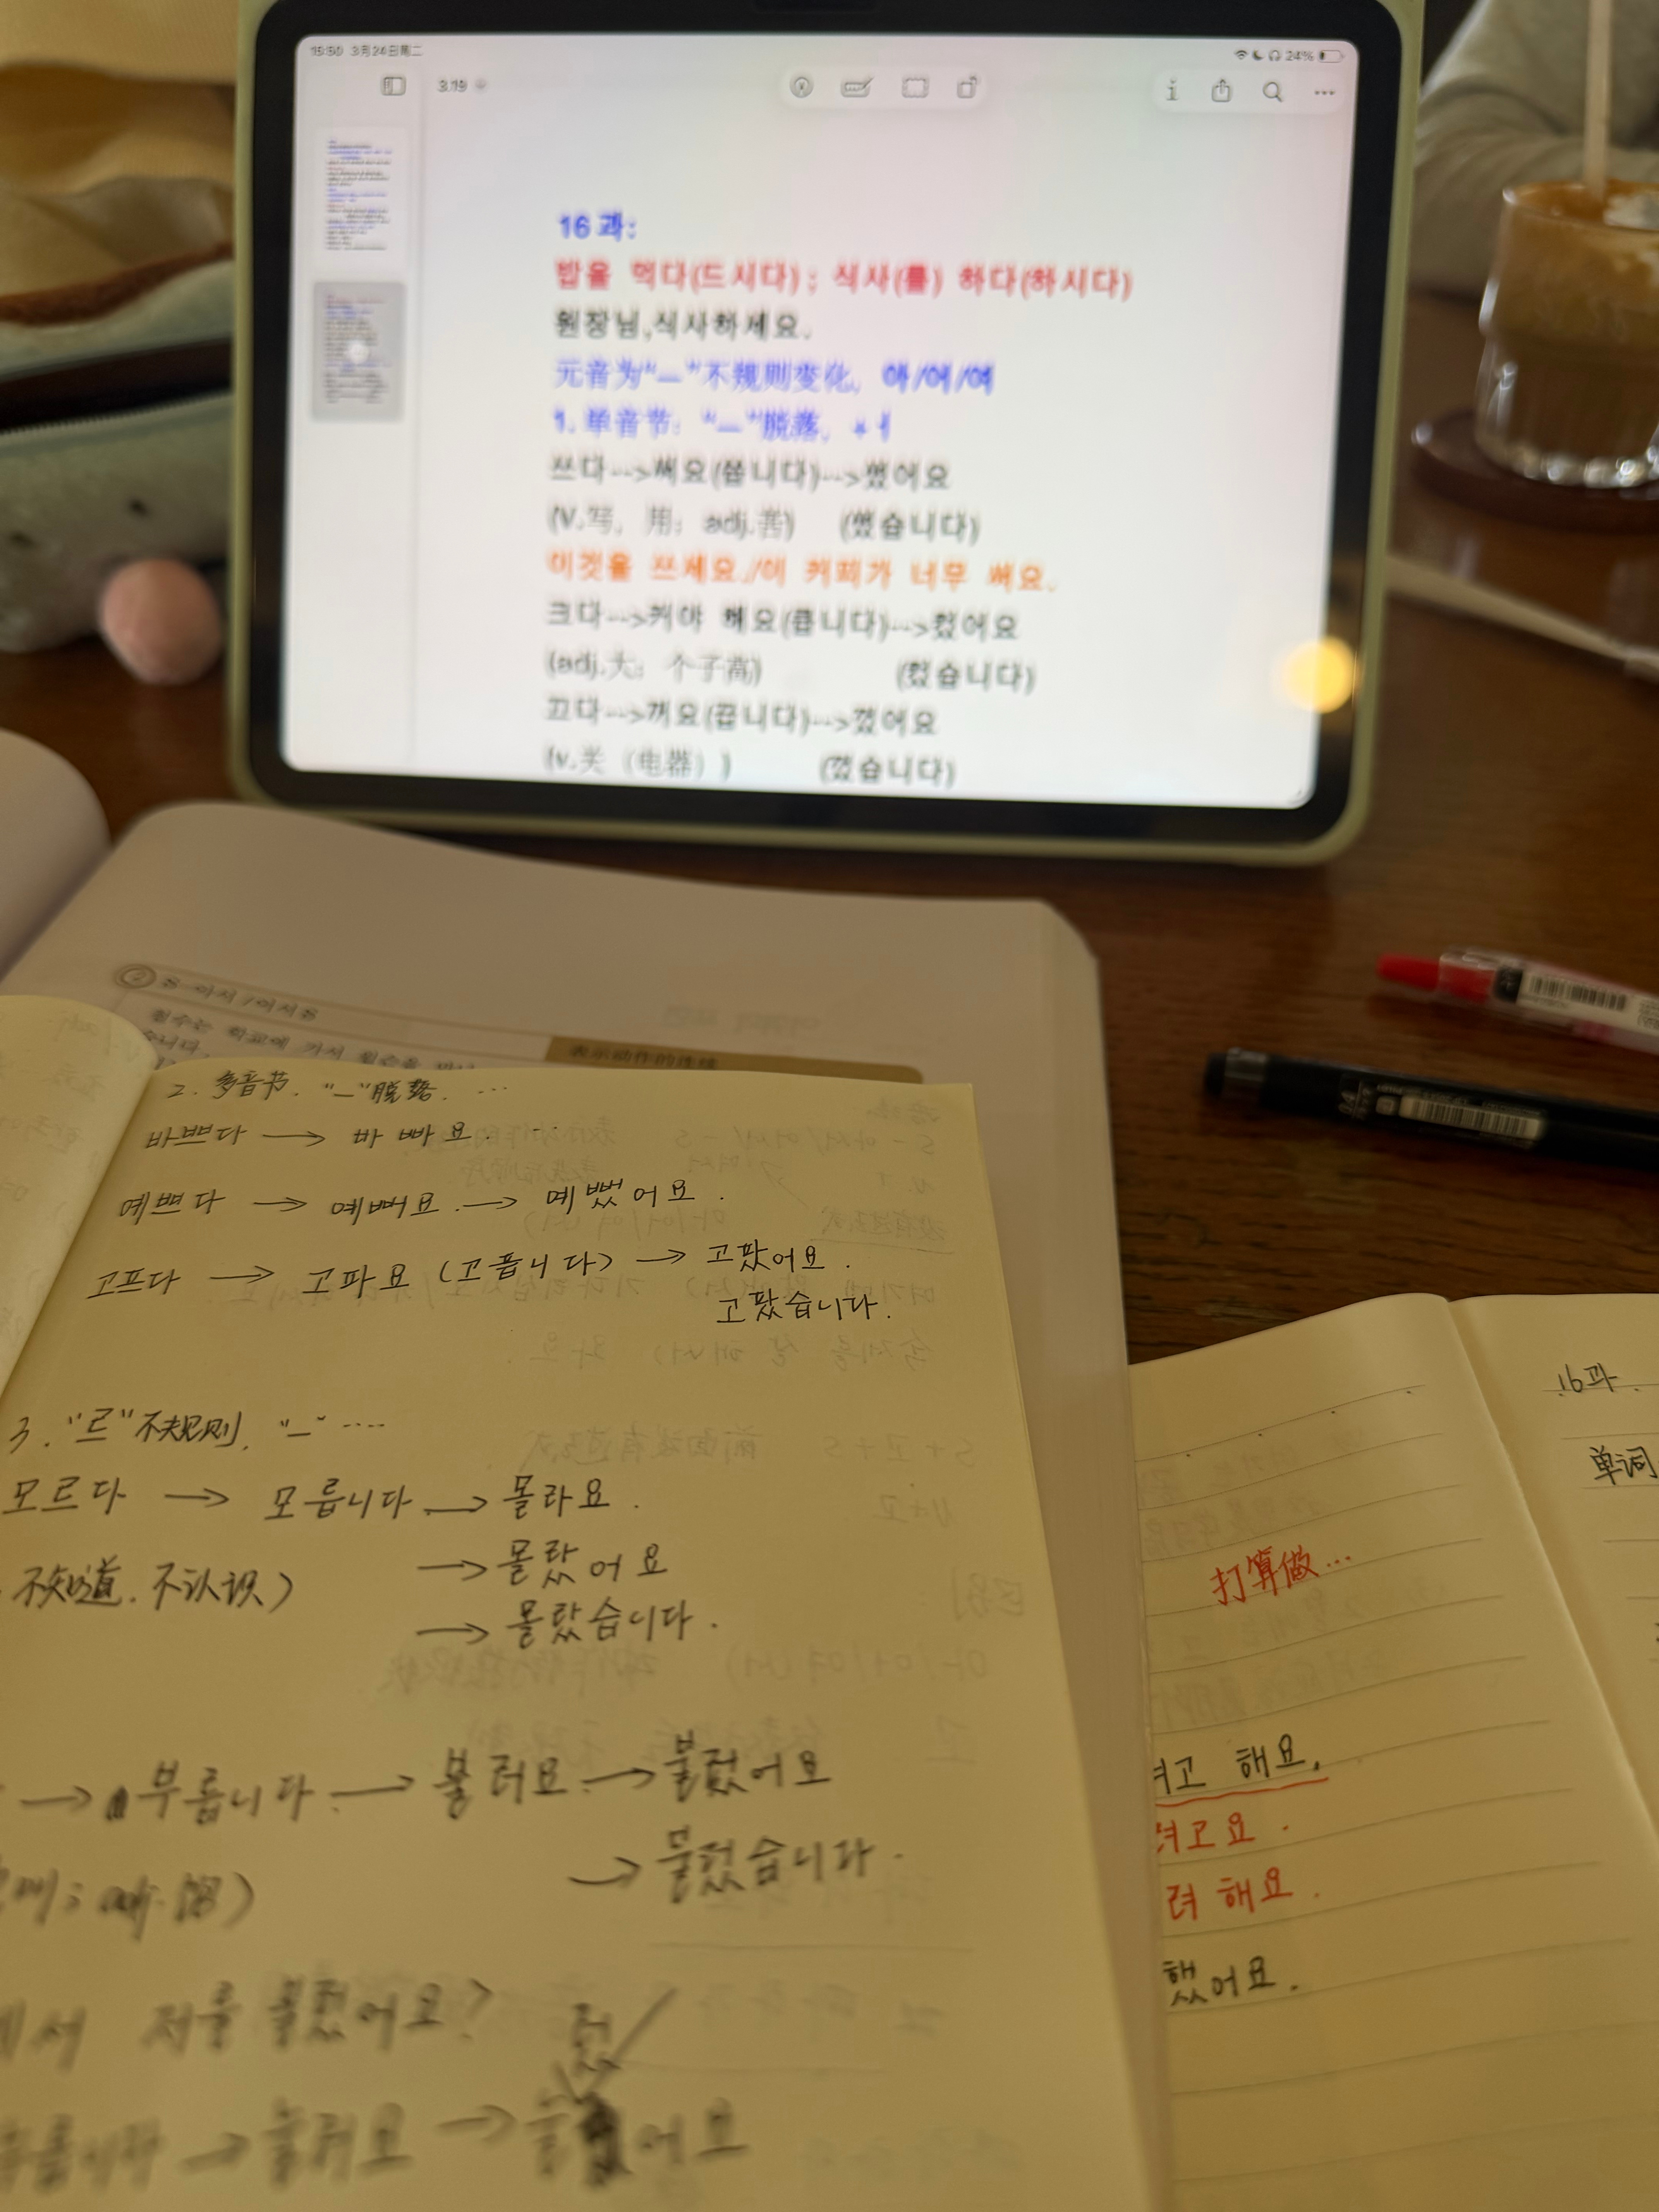 15:50 3月24日周二
24%
3.19
16과:
밥을 먹다(드시다) ; 식사(를) 하다(하시다)
원장님,식사하세요.
元音为“ㅡ”不规则变化, 아/어/여
1. 单音节: “ㅡ”脱落, + ㅓ
쓰다--->써요(씁니다)--->썼어요
(V.写, 用; adj.苦) (썼습니다)
이것을 쓰세요./이 커피가 너무 써요.
크다--->커야 해요(큽니다)--->컸어요
(adj.大; 个子高) (컸습니다)
끄다--->꺼요(끕니다)--->껐어요
(v.关 (电器) ) (껐습니다)
철수는 학교에 가서
表示动作的连续
2. 多音节. “ㅡ”脱落. ...
바쁘다 → 바빠요. ...
예쁘다 → 예뻐요. → 예뻤어요.
고프다 → 고파요 (고픕니다) → 고팠어요.
고팠습니다.
3. “르”不规则, “ㅡ” ....
모르다 → 모릅니다 → 몰라요.
不知道. 不认识)
→ 몰랐어요
→ 몰랐습니다.
→ 부릅니다. → 불러요. → 불렀어요
→ 불렀습니다.
에서 저를 불렀어요?
렀
→ 눌러요 → 어요
16과.
单词
打算做...
려고 해요.
려고요.
려 해요.
했어요.